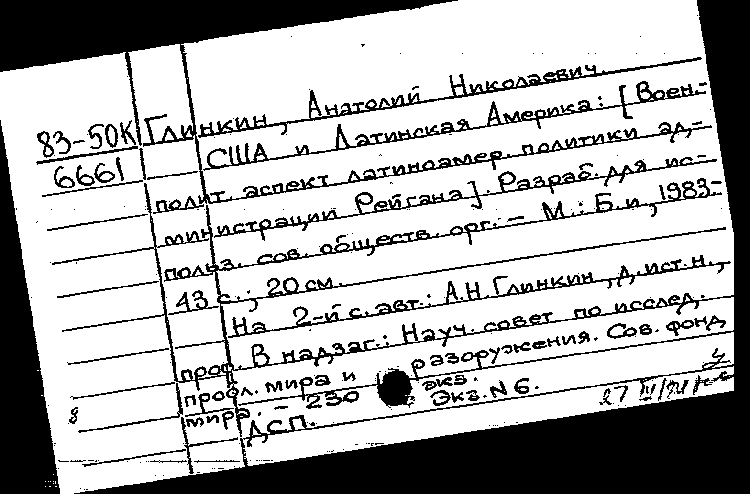 83-50К Глинкин, Анатолий Николаевич.
6661 США и Латинская Америка: [Воен.-
полит. аспект латиноамер. политики ад-
министрации Рейгана]. Разраб. для ис-
польз. сов. обществ. орг. - М.: Б.и., 1983-
43 с.; 20 см.
На 2-й с. авт.: А.Н. Глинкин, д. ист. н.,
проф. В надзаг.: Науч. совет по исслед.
пробл. мира и разоружения. Сов. фонд
мира. - 230 экз.
Экз. N 6.
ДСП.
8